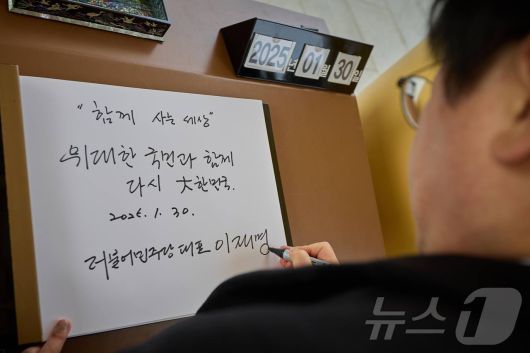 2025년 01월 30일
"함께 사는 세상"
위대한 국민과 함께
다시 大한민국.
2025. 1. 30.
더불어민주당 대표 이재명
뉴스1